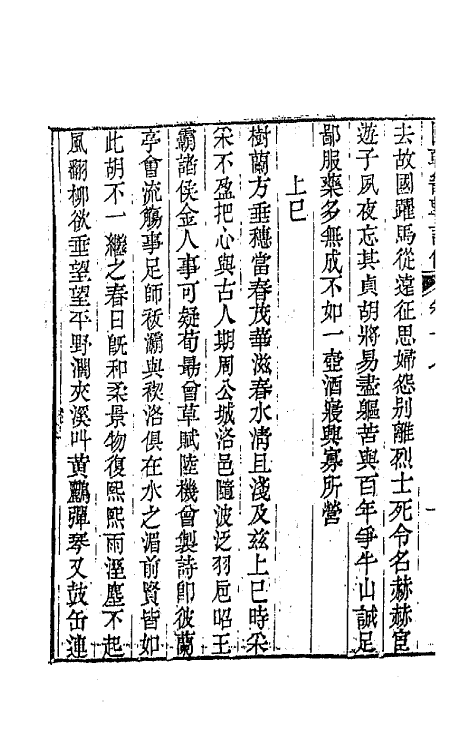 去故國躍馬從遠征思婦怨别離烈士死令名赫赫宦
遊子夙夜忘其貞胡將易盡軀苦與百年爭牛山誠足
鄙服藥多無成不如一壺酒寢興寡所營
上巳
樹蘭方垂穗當春茂華滋春水淸且淺及兹上巳時采
采不盈把心與古人期周公城洛邑隨波泛羽卮昭王
霸諸侯金人事可疑荀勗曾草賦陸機曾製詩卽彼蘭
亭會流觴事足師祓灞與禊洛俱在水之湄前賢皆如
此胡不一繼之春日旣和柔景物復熙熙雨溼塵不起
風翻柳欲垂望望平野濶夾溪叫黃鸝彈琴又鼓缶連